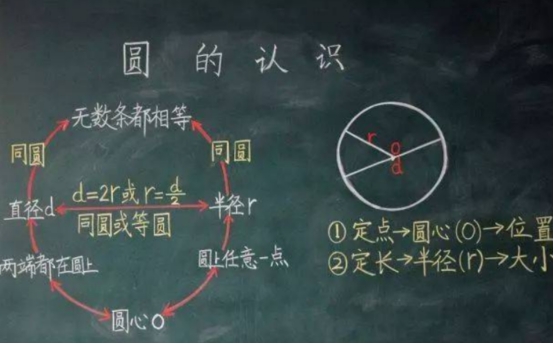 圆的认识
无数条都相等
同圆
同圆
直径d
d=2r或r=d/2
半径r
同圆或等圆
两端都在圆上
圆上任意一点
圆心O
r
o
d
①定点→圆心(O)→位置
②定长→半径(r)→大小